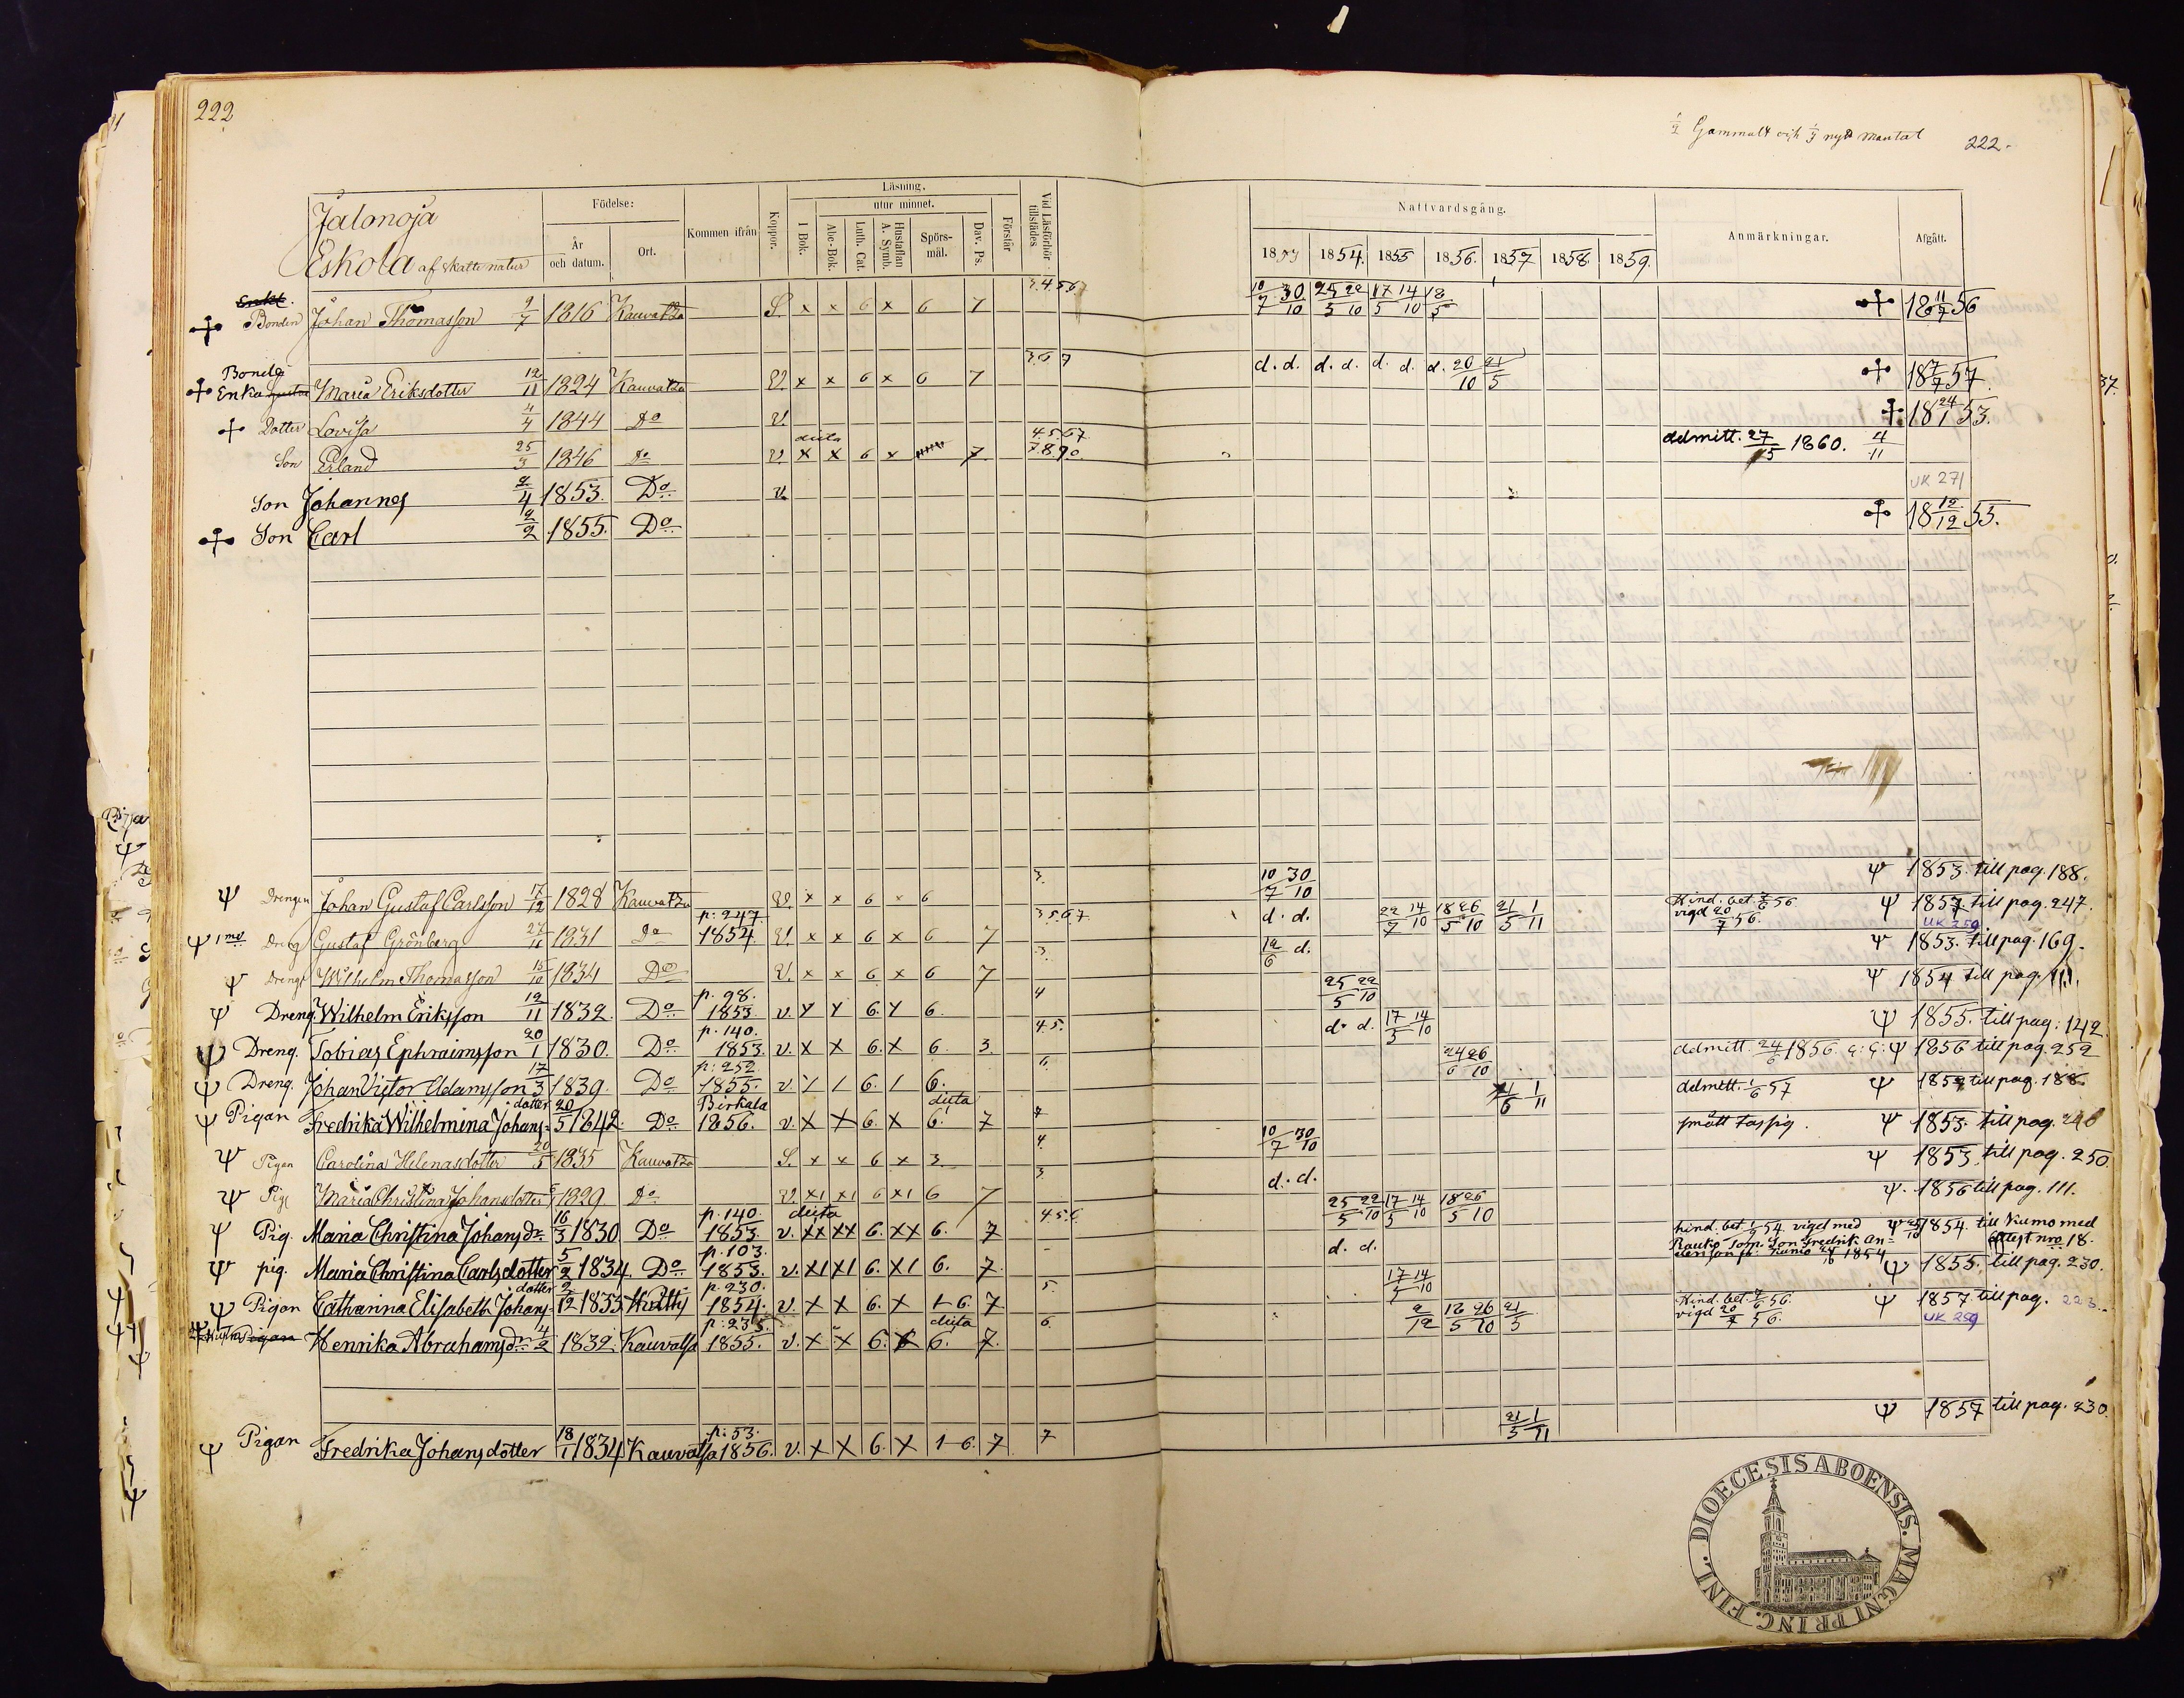 222
½ Gammalt och ⅓ nytt mantal 222.
Jalonoja
Eskola af skatte natur
Födelse:
År och datum.
Ort.
Kommen ifrån
Koppor.
Läsning.
I Bok.
utur minnet.
Abc-Bok.
Luth. Cat.
Hustaflan A. Symb.
Spörsmål.
Dav. Ps.
Förstår
Vid Läsförhör tillstädes
Nattvardsgång.
1853 1854. 1855 1856. 1857 1858. 1859.
Anmärkningar.
Afgått.
Bonden Johan Thomasson 9/7 1816 Kauvatza S x x 6 x 6 7 3.4.5.6. 10/7 30/10 25/5 22/10 17/5 14/10 18/5 18 11/7 56
Bonde Enka Maria Eriksdotter 12/11 1824 Kauvatza x x 6 x 6 7 3.6 7 d. d. d. d. d. d. d. 20/10 21/5 18 7/7 57.
Dotter Lovisa 4/4 1844 Do V. 18 24/1 53.
Son Erland 25/3 1846 Do V. dicta x x 6 x 7 4.5.6.7. 7.8.9.0. admitt. 27/5 1860. 4/11
Son Johannes 2/4 1853. Do v. UK 271
Son Carl 2/2 1855. Do 18 12/12 55.
Drengen Johan Gustaf Carlsson 17/12 1828 Kauvatza x x 6 x 6 3. 10/7 30/10 Ψ 1853. till pag. 188.
Dreng Gustaf Grönberg 27/11 1831 Do p. 247. 1854 x x 6 x 6 7 3.5.6.7. d. d. 22/7 14/10 18/5 26/10 21/5 1/11 Hind. bet. 2/6 56 vigd 20/7 56. Ψ 1857. till pag. 247. UK 259
Dreng Wilhelm Thomasson 15/10 1834 Do V. x x 6 x 6 7 3. 12/6 d. Ψ 1853. till pag. 169.
Dreng. Wilhelm Eriksson 12/11 1832. Do p. 98. 1853. v. x x 6. x 6. 4 25/5 22/10 Ψ 1854 till pag. 111.
Dreng. Tobias Ephraimsson 20/1 1830. Do p. 140. 1853. v. x x 6. x 6. 3. 4.5. d. d. 17/5 14/10 Ψ 1855. till pag. 142
Dreng. Johan Victor Adamsson 17/3 1839. Do p. 252. 1855. v. 6. 6. 6. 24/6 26/10 admitt. 24/6 1856. Ψ 1856 till pag. 252
Pigan Fredrika Wilhelmina Johansdotter 20/5 1842. Do Birkala 1856. v. x x 6. x dicta 6. 7 7 1/6 1/11 admitt. 1/6 57 Ψ 1857 till pag. 188.
Pigan Carolina Helenasdotter 20/5 1835 Kauvatza S. x x 6 x 3. 4. 10/7 30/10 smått tassig. Ψ 1853. till pag. 246
Pig Maria Christina Johansdotter 1829 Do x1 x1 6 x1 6 7 3. d. d. Ψ 1853. till pag. 250.
Pig. Maria Christina Johansdr 16/3 1830 Do p. 140. 1853. v. dicta xx xx 6. xx 6. 7 4.5.6. 25/5 22/10 17/5 14/10 18/5 26/10 Ψ. 1856 till pag. 111.
pig. Maria Christina Carlsdotter 5/2 1834. Do p. 103. 1853. v. x1 x1 6. x1 6. 7. d. d. hind. bet 1/9 54. vigd med Rauko Torp. Son Fredrik Andersson fr. Kumo 1854 Ψ 1854. till Kumo med attest nro 18.
Pigan Catharina Elisabeth Johansdotter 2/12 1833 p. 230. 1854. v. x x 6. x 1-6. 7 5. 17/5 14/10 Ψ 1855. till pag. 230.
Henrika Abrahamsdr 4/2 1832. Kauvatsa p. 235. 1855. v. x x 6. x dicta 6. 7. 6 2/12 18/5 26/10 21/5 Hind. bet. 2/6 56. vigd 20/7 56. Ψ 1857 till pag. 223. UK 259
Pigan Fredrika Johansdotter 18/1 1834 Kauvatsa p. 53. 1856. v. x x 6. x 1-6. 7 7 21/5 1/11 Ψ 1857 till pag. 230.
DIOECESIS ABOENSIS. MAGNI PRINC. FINL.